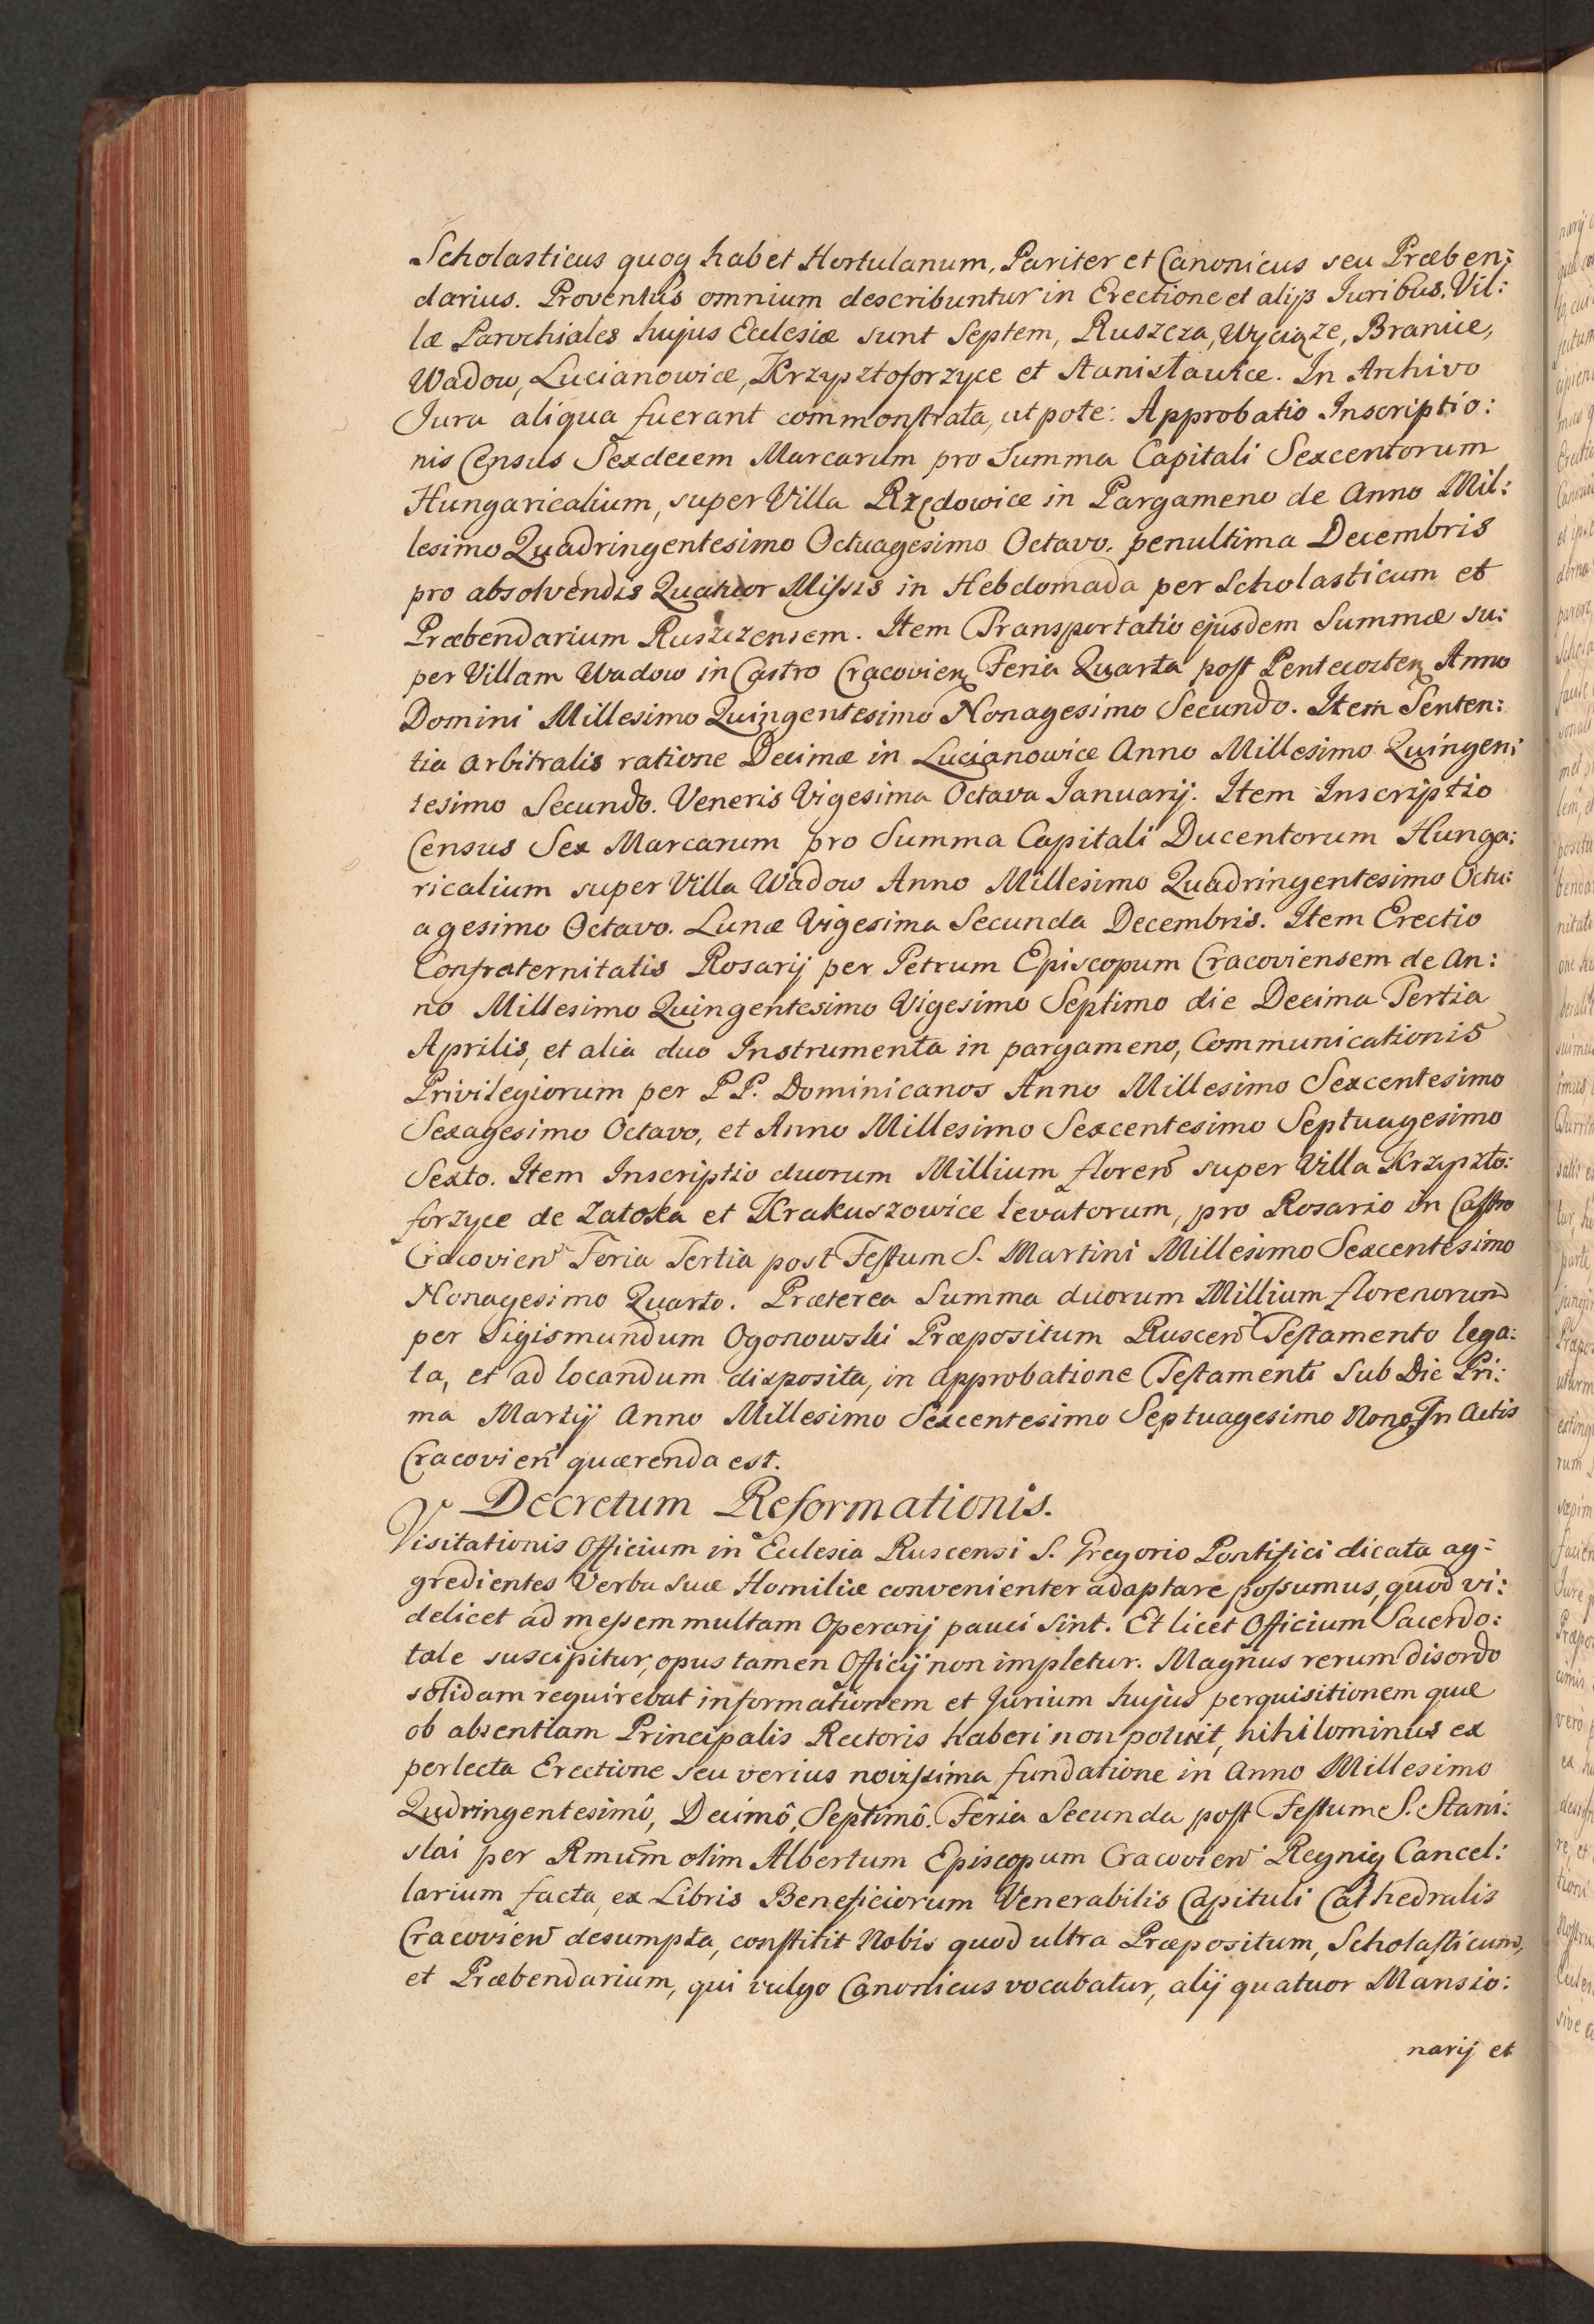 Scholasticus quoq habet Hortulanum, Pariter et Canonicus seu Præben:
darius. Proventus omnium describuntur in Erectione et alijs Iuribus. Vil:
læ Parochiales hujus Ecclesiæ sunt Septem, Ruszcza, Wyciąze, Branice,
Wadow, Lucianowice, Krzysztoforzyce et Stanisławice. In Archivo
Jura aliqua fuerant commonstrata, utpote: Approbatio Inscriptio:
nis Census Sexdecem Marcarum pro Summa Capitali Sexcentorum
Hungaricalium, super Villa Rzędowice in Pargameno de Anno Mil:
lesimo Quadringentesimo Octuagesimo Octavo. penultima Decembris
pro absolvendis Quatuor Missis in Hebdomada per Scholasticum et
Præbendarium Ruszczensem. Item Transportatio ejusdem Summæ su:
per Villam Wadow in Castro Cracovien Feria Quarta post Pentecosten Anno
Domini Millesimo Quingentesimo Nonagesimo Secundo. Item Senten:
tia arbitralis ratione Decimæ in Lucianowice Anno Millesimo Quingen:
tesimo Secundo. Veneris Vigesima Octava Ianuarij. Item Inscriptio
Census Sex Marcarum pro Summa Capitali Ducentorum Hunga:
ricalium super Villa Wadow Anno Millesimo Quadringentesimo Octu:
agesimo Octavo. Lunæ Vigesima Secunda Decembris. Item Erectio
Confraternitatis Rosarij per Petrum Episcopum Cracoviensem de An:
no Millesimo Quingentesimo Vigesimo Septimo die Decima Tertia
Aprilis, et alia duo Instrumenta in pargameno, Communicationis
Privilegiorum per PP. Dominicanos Anno Millesimo Sexcentesimo
Sexagesimo Octavo, et Anno Millesimo Sexcentesimo Septuagesimo
Sexto. Item Inscriptio duorum Millium floren super Villa Krzyszto:
forzyce de Zatoka et Krakuszowice levatorum, pro Rosario in Castro
Cracovien Feria Tertia post Festum S. Martini Millesimo Sexcentesimo
Nonagesimo Quarto. Præterea Summa duorum Millium florenorum
per Sigismundum Ogonowski Præpositum Ruscen Testamento lega:
ta, et ad locandum disposita, in approbatione Testamenti Sub Die Pri:
ma Martij Anno Millesimo Sexcentesimo Septuagesimo Nono, In Actis
Cracovien quærenda est.
Decretum Reformationis.
Visitationis Officium in Ecclesia Ruscensi S. Gregorio Pontifici dicata ag:
gredientes Verba suæ Homiliæ convenienter adaptare possumus, quod vi:
delicet ad messem multam Operarij pauci sint. Et licet Officium Sacerdo:
tale suscipitur, opus tamen Officij non impletur. Magnus rerum disordo
solidam requirebat informationem et Jurium hujus perquisitionem quæ
ob absentiam Principalis Rectoris haberi non potuit, nihilominus ex
perlecta Erectione seu verius novissima fundatione in Anno Millesimo
Qudringentesimô, Decimô, Septimô. Feria Secunda post Festum S. Stani:
slai per Rmum olim Albertum Episcopum Cracovien Regniq Cancel:
larium facta, ex Libris Beneficiorum Venerabilis Capituli Cathedralis
Cracovien desumpta, constitit Nobis quod ultra Præpositum, Scholasticum,
et Præbendarium, qui vulgo Canonicus vocabatur, alij quatuor Mansio:
narij et